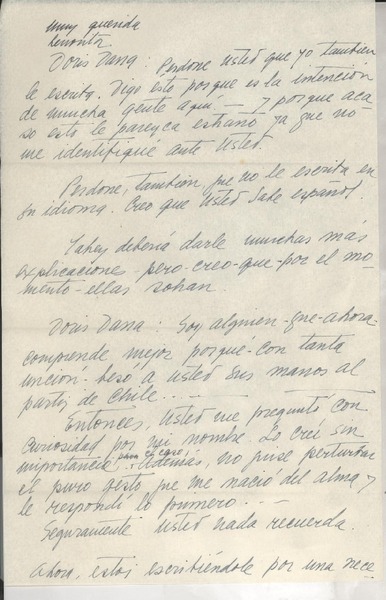 muy querida
Señorita
Doris Dana: Perdone Usted que yo también
le escriba. Digo esto porque es la intención
de mucha gente aquí — y porque aca-
so esto le parezca estraño ya que no
me identifiqué ante Usted.
Perdone, también que no le escriba en
su idioma. Creo que Usted sabe español.
Talvez debería darle muchas más
explicaciones - pero - creo - que - por el mo-
mento - ellas sobran
Doris Dana: Soy alguien - que - ahora -
comprende mejor porqué - con tanta
unción - besó a Usted sus manos al
partir de Chile....
Entonces, Usted me preguntó con
curiosidad por mi nombre. Lo creí sin
importancia para el caso. Además, no quise perturbar
el puro gesto que me nació del alma y
le respondí lo primero...
Seguramente Usted nada recuerda.
Ahora, estoi escribiéndole por una nece